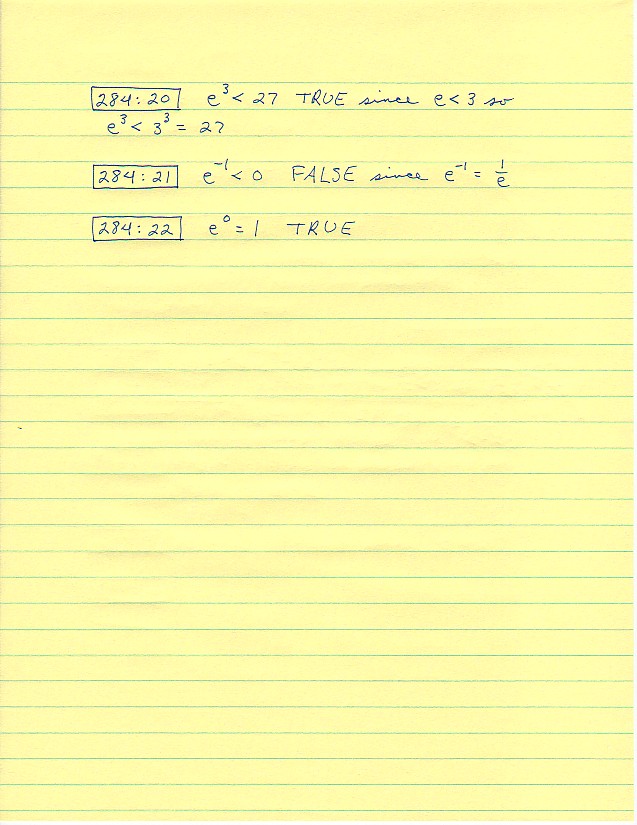 284:20 e³ < 27 TRUE since e < 3 so
e³ < 3³ = 27
284:21 e⁻¹ < 0 FALSE since e⁻¹ = 1/e
284:22 e⁰ = 1 TRUE